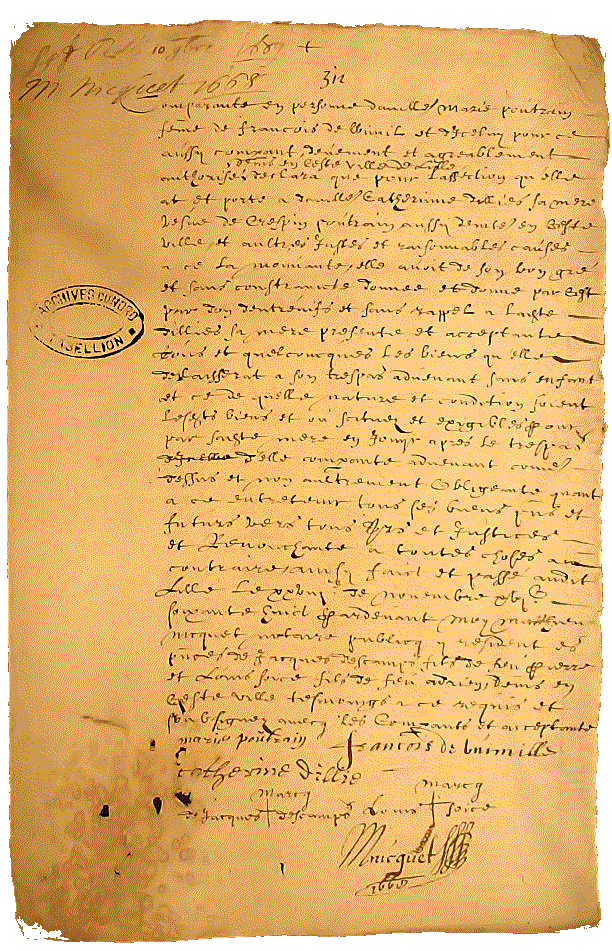 10 9bre 1689 +
M. Nicquet 1668
312
Comparante en personne damlle Marie poutrain
feme de francois de et diceluy pour ce
aussy compant, deuement et agreablement
demt en ceste ville de Lille
authorisee declara que pour l'affection qu'elle
at et porte a damlle Catherinne dillies sa mere
vefue de Crespin poutrain aussy demte en ceste
ville et aultres justes et raisonnables causes
a ce la mouuante, elle auoit de son bon gré
et sans constrainte donné et donne par cest
par don dentreuifs et sans rappel a ladte
dillies sa mere presente et acceptante
tous et quelconcques les biens qu'elle
delaisserat a son trespas aduenant sans enfant
et ce de quelle nature et condition soient
lesdts biens et ou scituez et exigibles pour
par ladte mere en jouyr apres le trespas
d'icelle d'elle compante aduenant come
dessus et non aultrement Obligeante quant
a ce entretenir tous ses biens pns et
futurs vers tous et Justices
et Renonchante a toutes choses au
contraire, ainsy faict et passé audit
Lille le xxviije de Nouembre xvjc
soixante huict pardeuant moy Mathieu
Nicquet notaire publicq y resident es
pnces de Jacques descamps fils de feu Pierre
et Louis soice fils de feu Adrien, demt en
ceste ville tesmoings a ce requis et
soubsignez aueicq les Compants et acceptante
marie poutrain francois de
catherine dillie
marcq marcq
de Jacques descamps Louis soice
MNicquet
1668
ARCHIVES DU NORD
TABELLION